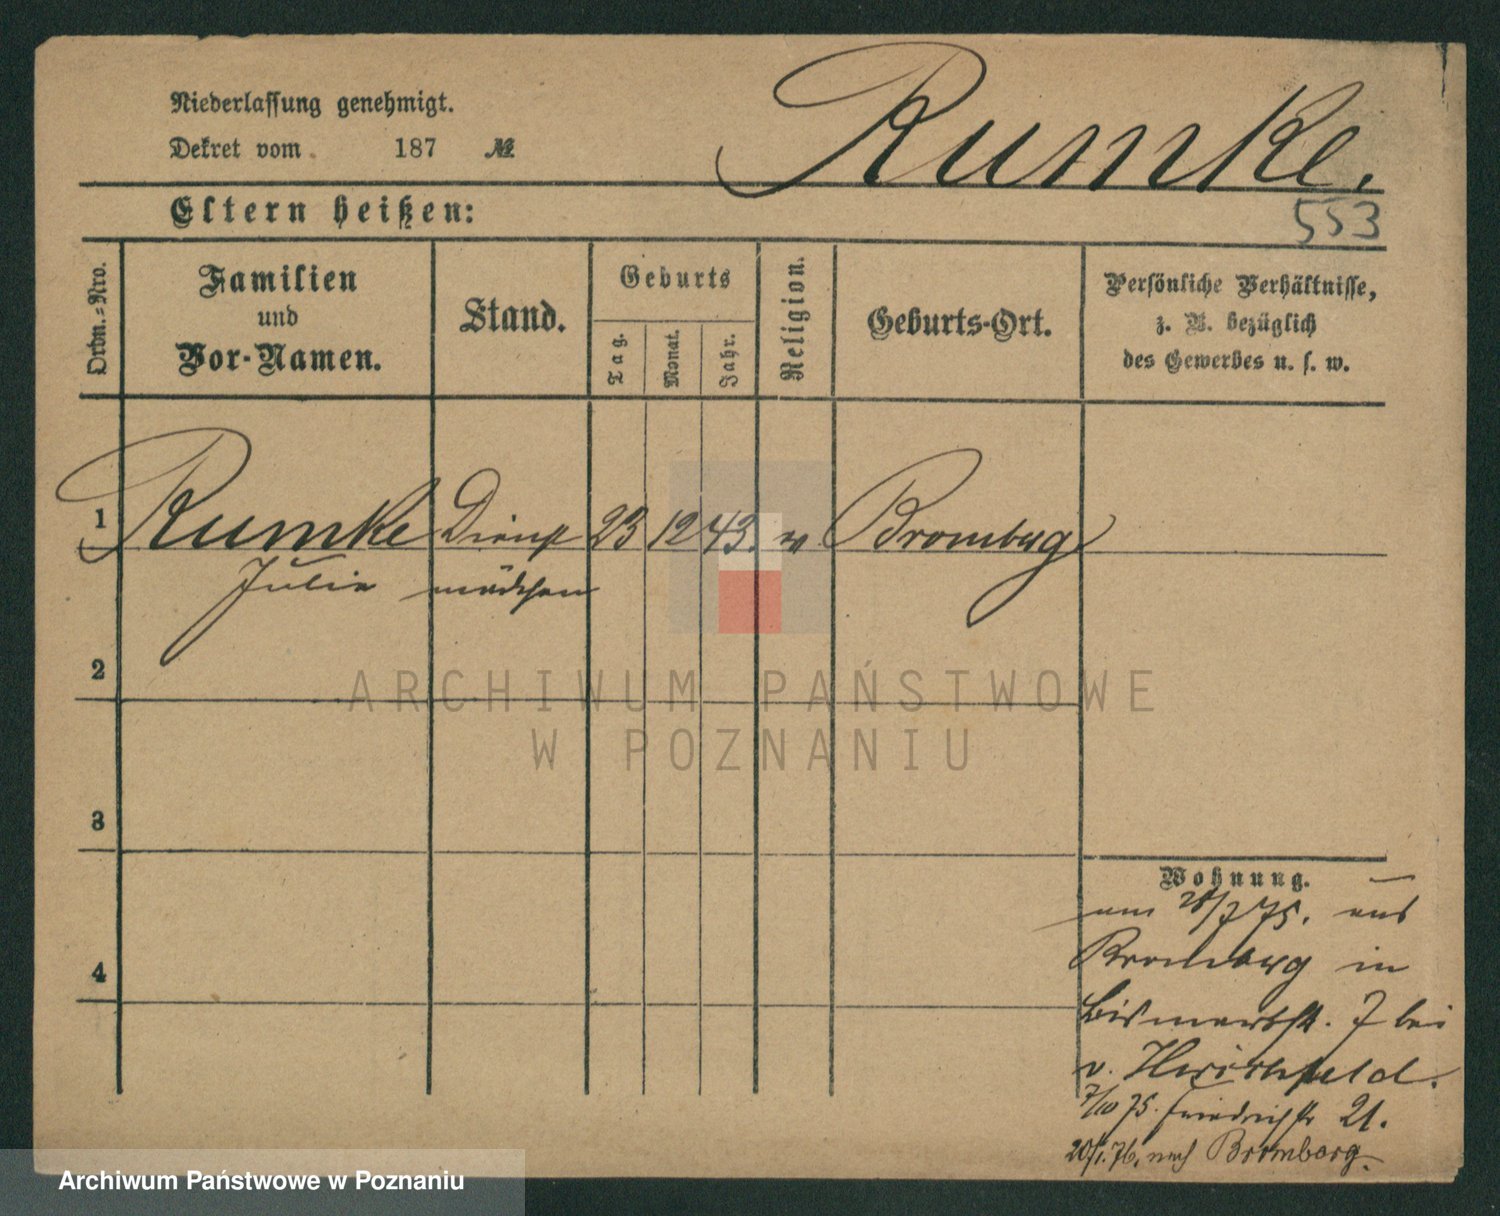 Niederlassung genehmigt.
Dekret vom 187 №
Rumke.
Eltern heißen:
553
Ordn.=Nro.
Familien
und
Vor-Namen.
Stand.
Geburts
Tag.
Monat.
Jahr.
Religion.
Geburts-Ort.
Persönliche Verhältnisse,
z. B. bezüglich
des Gewerbes u. s. w.
1 Rumke Dienst 23 12 43. Bromberg
Julie mädchen
2
ARCHIWUM PAŃSTWOWE
W POZNANIU
3
4
Wohnung.
/7 75. aus
Bromberg in
Bismarckstr. 7 bei
v. Hirschfeld.
7/10 75. Friedrichstr 21.
20/1. 76. nach Bromberg.
Archiwum Państwowe w Poznaniu